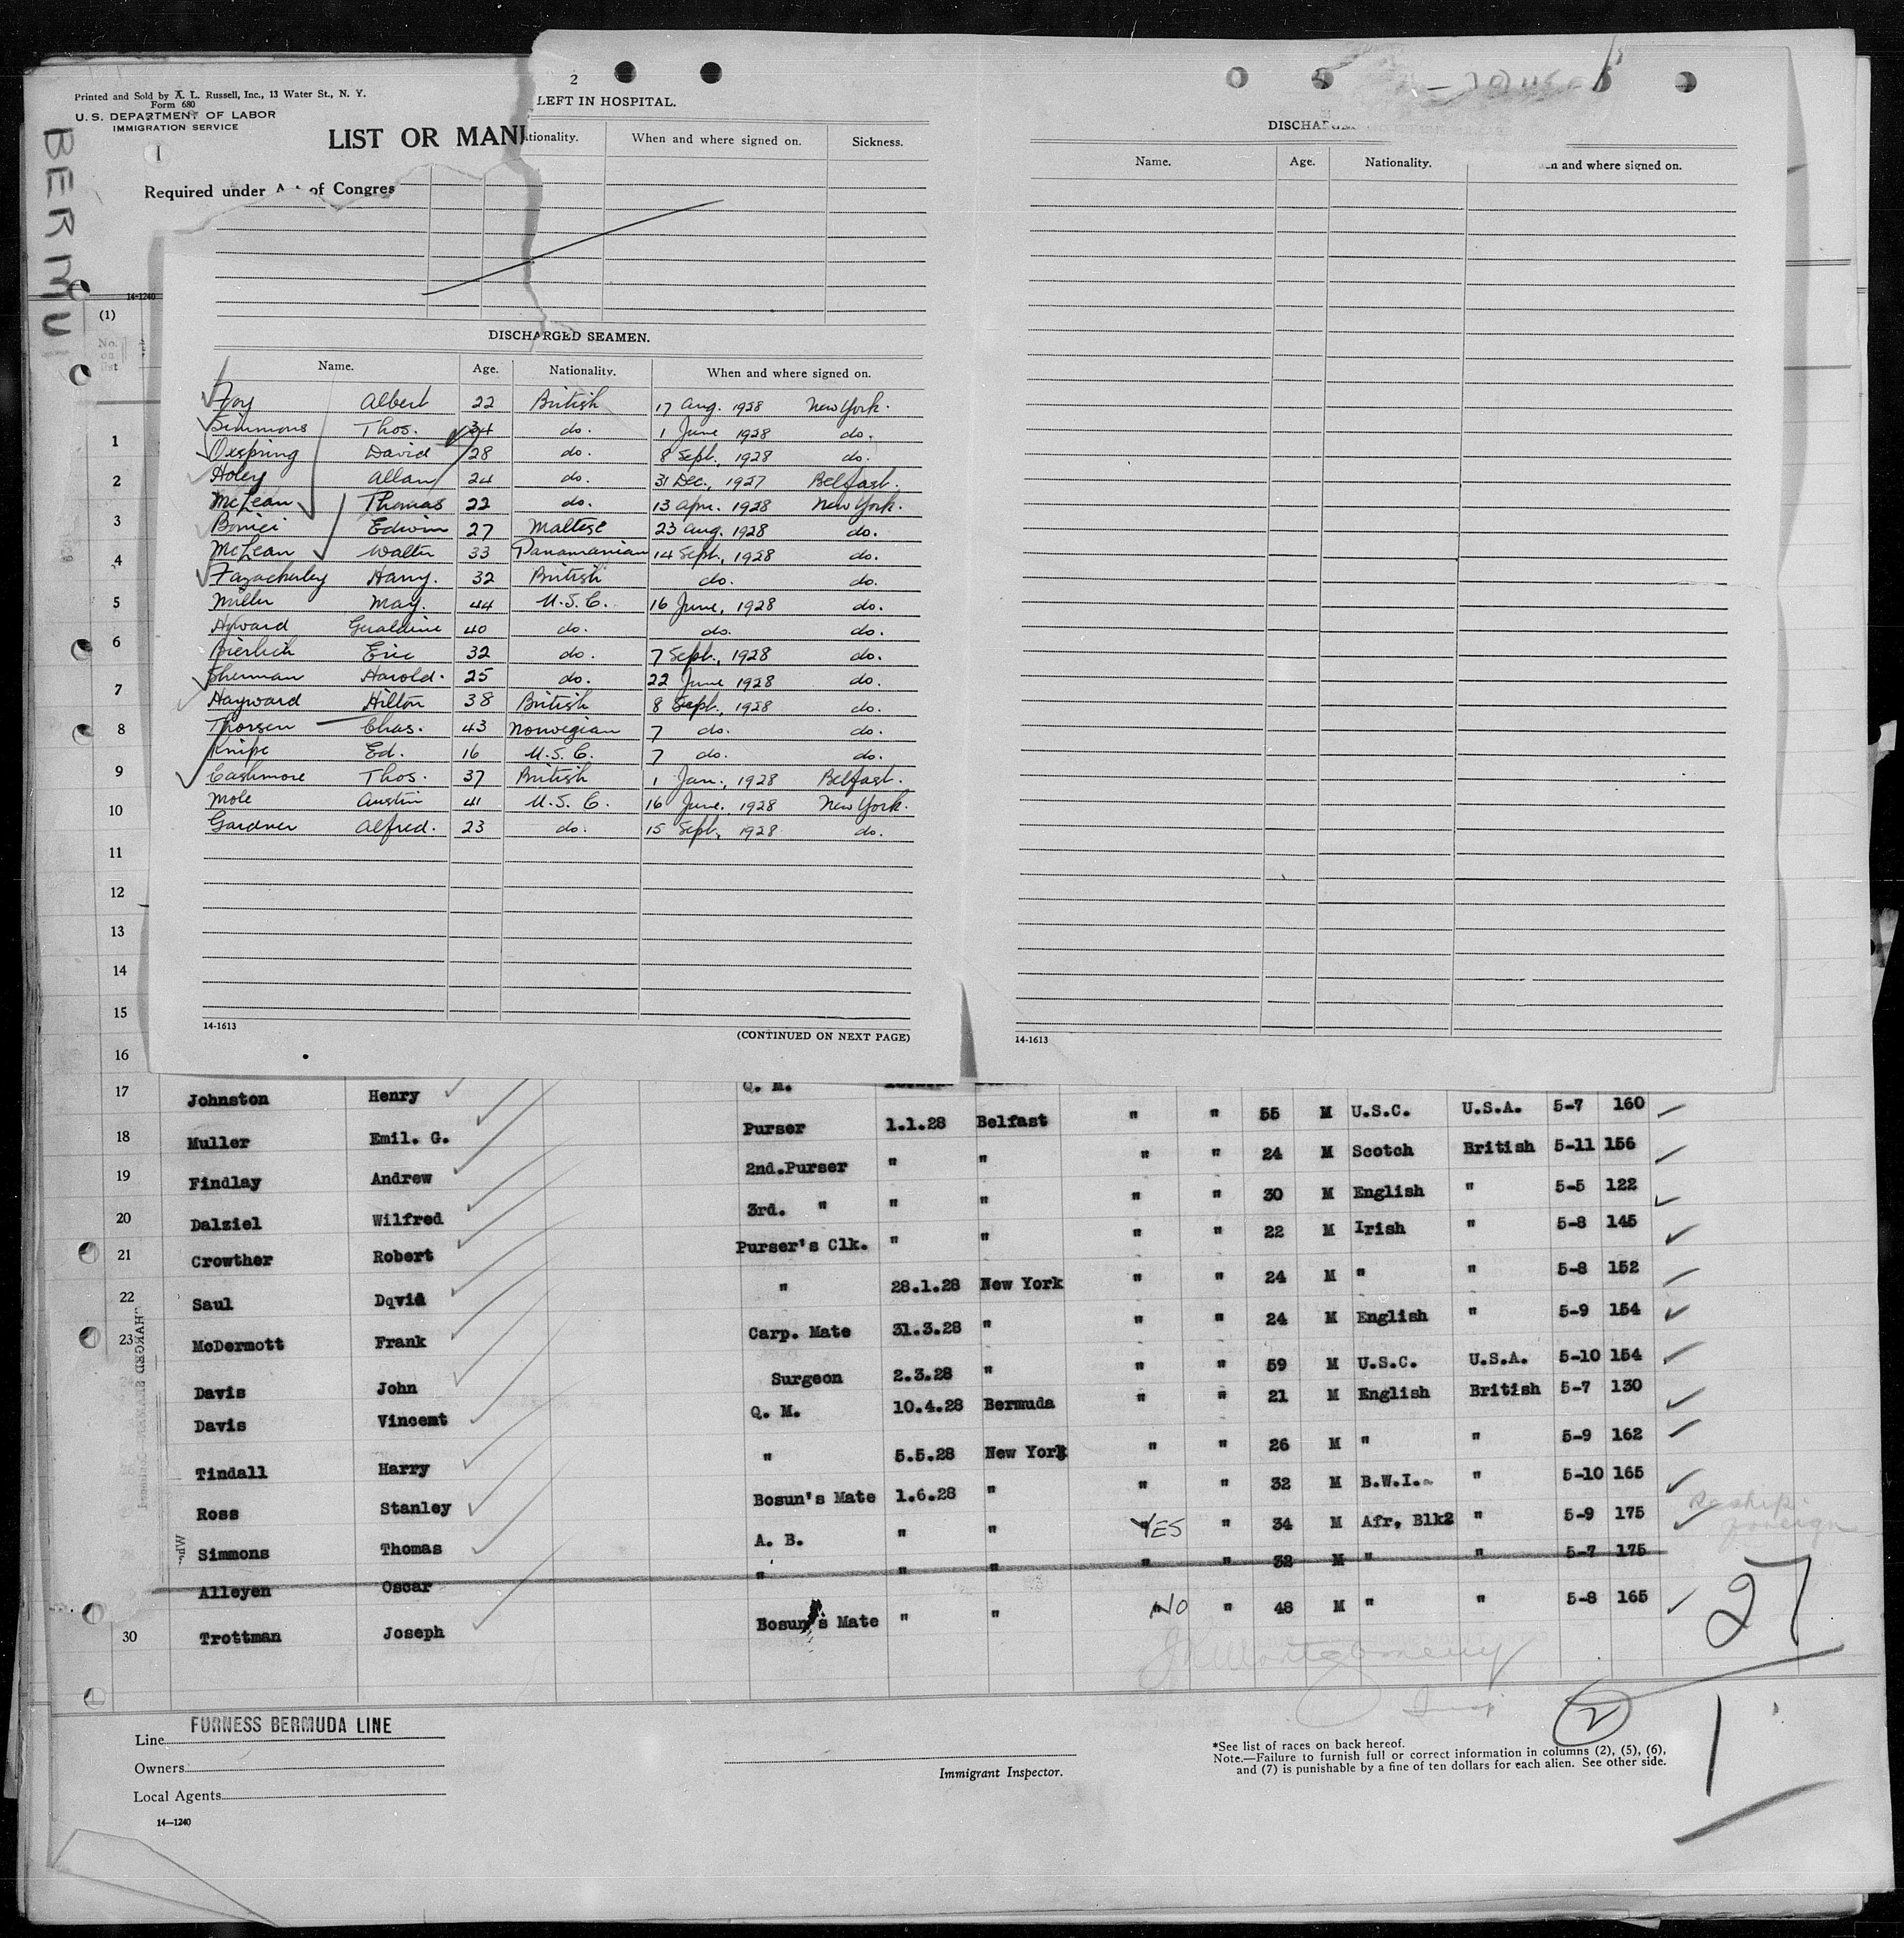 Printed and Sold by A. L. Russell, Inc., 13 Water St., N. Y.
Form 680
U. S. DEPARTMENT OF LABOR
IMMIGRATION SERVICE
LIST OR MANI
Required under of Congres
BERMU
14-1240
(1)
No. on list
2
LEFT IN HOSPITAL.
tionality. When and where signed on. Sickness.
DISCHARGED SEAMEN.
Name. Age. Nationality. When and where signed on.
Foy Albert 22 British 17 Aug. 1928 New York.
Simmons Thos. 34 do. 1 June 1928 do.
Oxspring David 28 do. 8 Sept. 1928 do.
Holey Allan 24 do. 31 Dec., 1927 Belfast.
McLean Thomas 22 do. 13 Apr. 1928 New York.
Bonici Edwin 27 Maltese 23 Aug. 1928 do.
McLean Walter 33 Panamanian 14 Sept., 1928 do.
Fazackerley Harry. 32 British do. do.
Miller May. 44 U.S.C. 16 June, 1928 do.
Geraldine 40 do. do. do.
Bierlich Eric 32 do. 7 Sept., 1928 do.
Sherman Harold. 25 do. 22 June 1928 do.
Hayward Hilton 38 British 8 Sept., 1928 do.
Thorsen Chas. 43 Norwegian 7 do. do.
Knipe Ed. 16 U.S.C. 7 do. do.
Cashmore Thos. 37 British 1 Jan., 1928 Belfast.
Mole Austin 41 U.S.C. 16 June, 1928 New York.
Gardner Alfred. 23 do. 15 Sept., 1928 do.
14-1613
(CONTINUED ON NEXT PAGE)
DISCHA
Name. Age. Nationality. and where signed on.
14-1613
1
2
3
4
5
6
7
8
9
10
11
12
13
14
15
16
17 Johnston Henry Q. M.
18 Muller Emil. G. Purser 1.1.28 Belfast " " 55 M U.S.C. U.S.A. 5-7 160
19 Findlay Andrew 2nd.Purser " " " " 24 M Scotch British 5-11 156
20 Dalziel Wilfred 3rd. " " " " " 30 M English " 5-5 122
21 Crowther Robert Purser's Clk. " " " " 22 M Irish " 5-8 145
22 Saul Dqvid " 28.1.28 New York " " 24 M " " 5-8 152
23 McDermott Frank Carp. Mate 31.3.28 " " " 24 M English " 5-9 154
Davis John Surgeon 2.3.28 " " " 59 M U.S.C. U.S.A. 5-10 154
Davis Vincent Q. M. 10.4.28 Bermuda " " 21 M English British 5-7 130
Tindall Harry " 5.5.28 New York " " 26 M " " 5-9 162
Ross Stanley Bosun's Mate 1.6.28 " " " 32 M B.W.I. " 5-10 165
Simmons Thomas A. B. " " YES " 34 M Afr, Blk2 " 5-9 175
Reship foreign
Alleyen Oscar " " " " " 32 M " " 5-7 175
30 Trottman Joseph Bosun's Mate " " NO " 48 M " " 5-8 165
27
2
1
FURNESS BERMUDA LINE
Line
Owners
Local Agents
14—1240
Immigrant Inspector.
*See list of races on back hereof.
Note.—Failure to furnish full or correct information in columns (2), (5), (6),
and (7) is punishable by a fine of ten dollars for each alien. See other side.